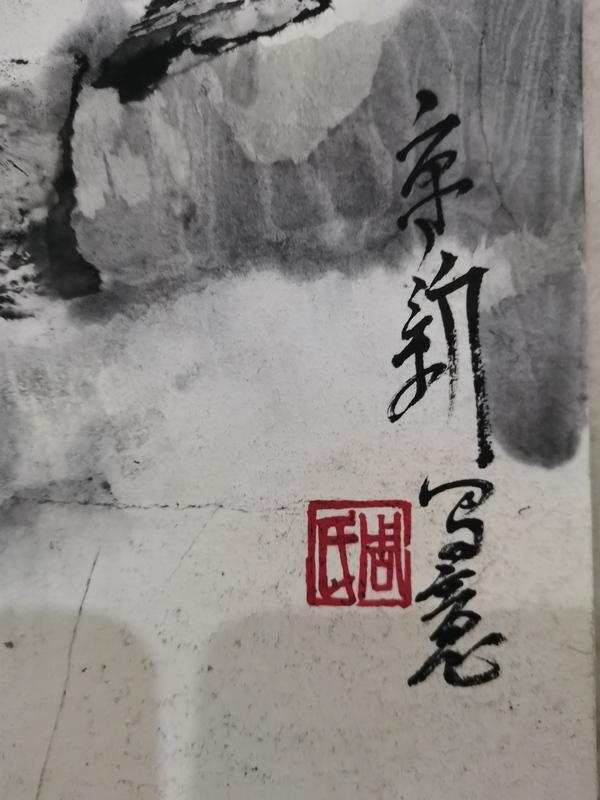 京新写意
周氏